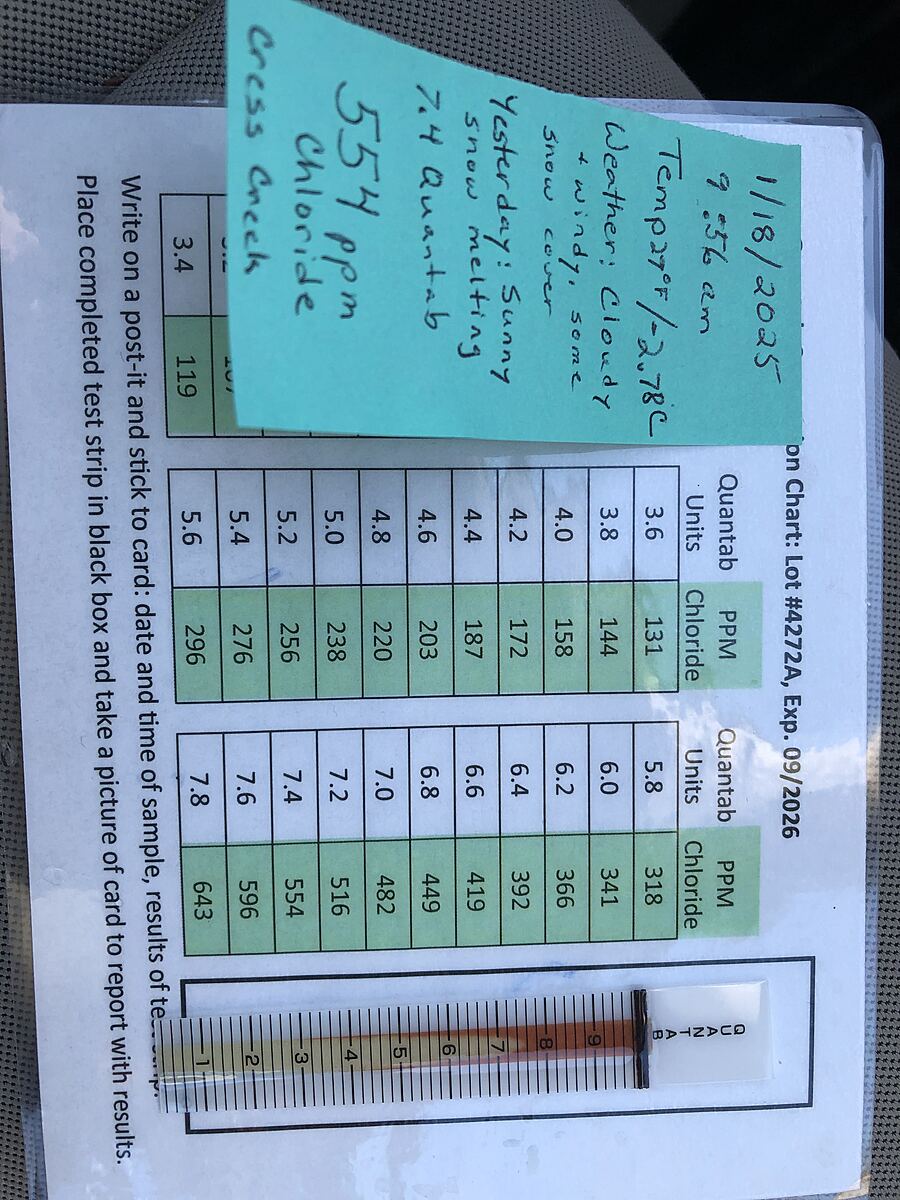 1/18/2025
9:56 am
Temp 27°F/-2.78°C
Weather: Cloudy
+ windy, some
snow cover
Yesterday: Sunny
snow melting
7.4 Quantab
554 ppm
Chloride
Cress Creek
on Chart: Lot #4272A, Exp. 09/2026
3.4 119
Quantab PPM
Units Chloride
3.6 131
3.8 144
4.0 158
4.2 172
4.4 187
4.6 203
4.8 220
5.0 238
5.2 256
5.4 276
5.6 296
Quantab PPM
Units Chloride
5.8 318
6.0 341
6.2 366
6.4 392
6.6 419
6.8 449
7.0 482
7.2 516
7.4 554
7.6 596
7.8 643
QUANTAB
9
8
7
6
5
4
3
2
1
Write on a post-it and stick to card: date and time of sample, results of
Place completed test strip in black box and take a picture of card to report with results.